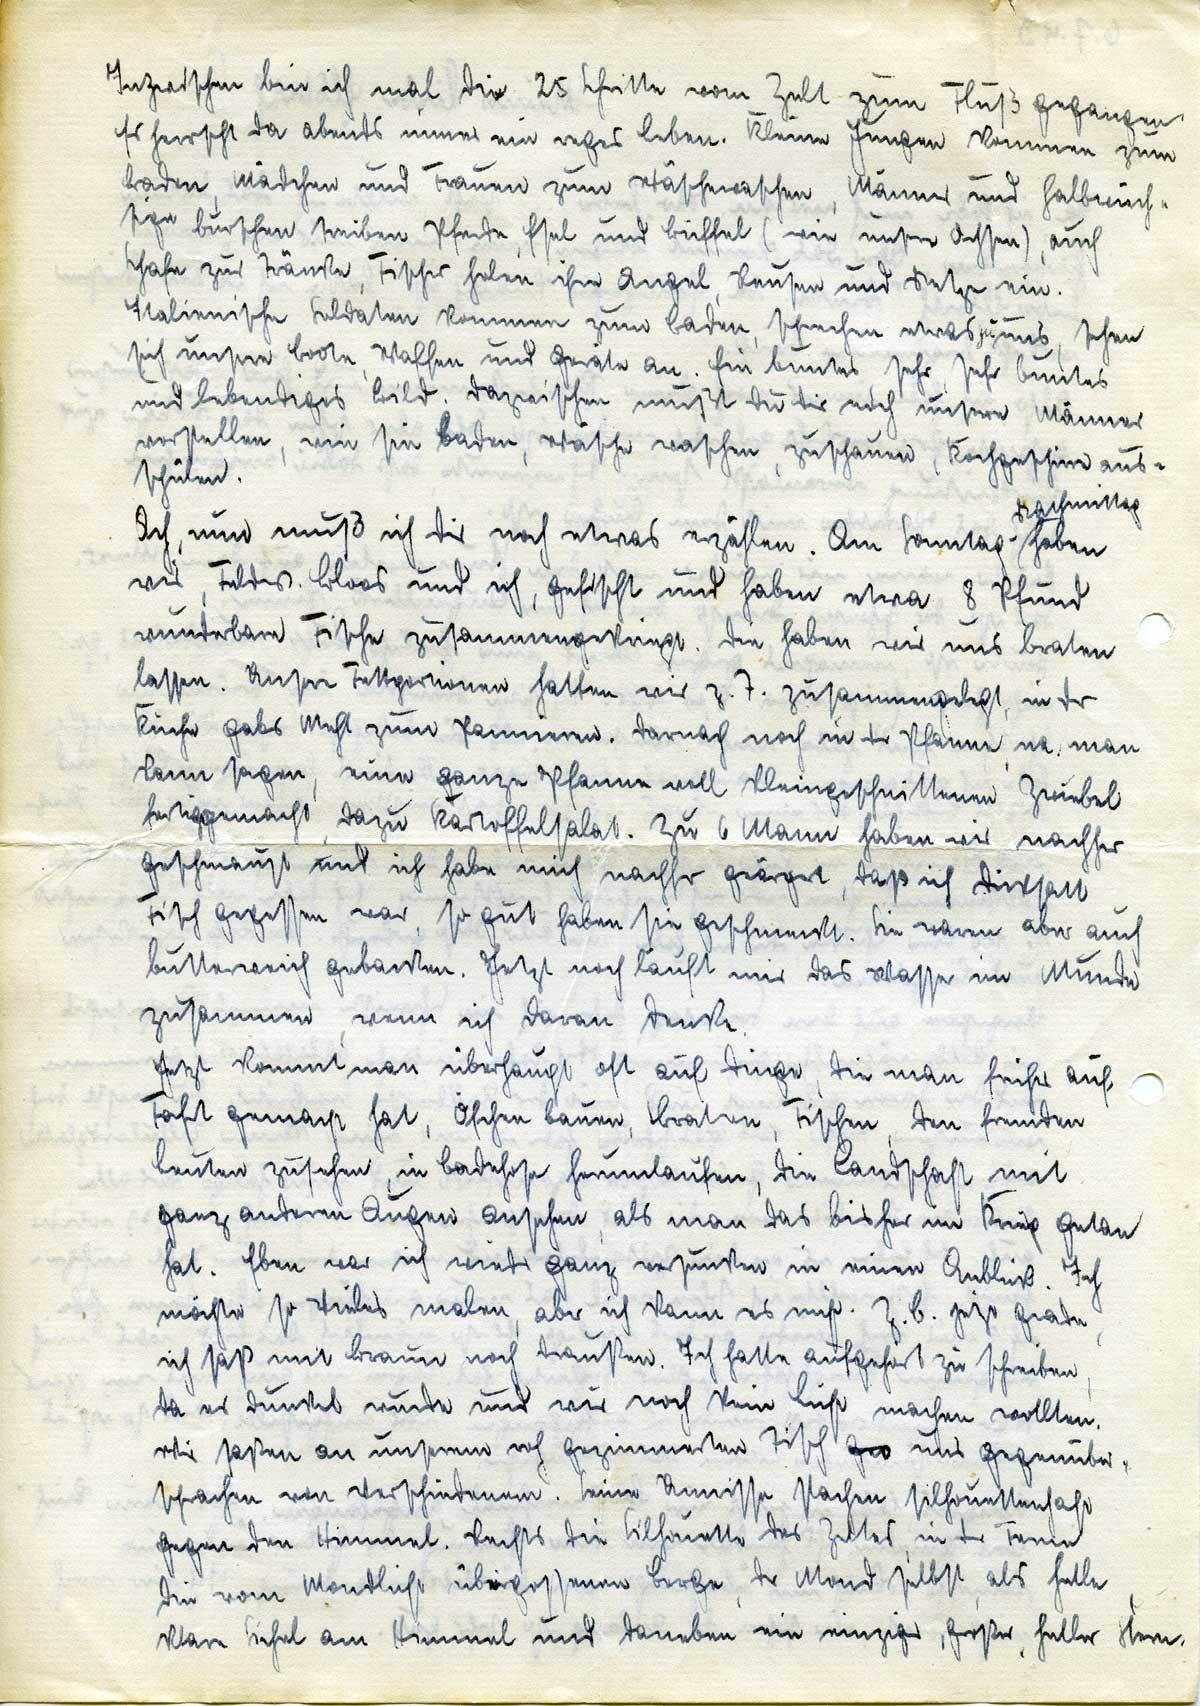 Inzwischen bin ich mal die 25 Schritte vom Zelt zum Fluß gegangen.
Es herrscht da abends immer ein reges Leben. Kleine Jungen kommen zum
Baden, Mädchen und Frauen zum Wäschewaschen, Männer und halbwüch-
sige Burschen treiben Pferde, Esel und Büffel (wie unsere Ochsen), auch
Schafe zur Tränke, Fischer holen ihre Angel, Reusen und Netze ein.
Italienische Soldaten kommen zum Baden, sprechen etwas zu uns, sehen
sich unsere Boote, Waffen und Geräte an. Ein buntes, sehr, sehr buntes
und lebendiges Bild. Dazwischen mußt du dir noch unsere Männer
vorstellen, wie sie baden, Wäsche waschen, zuschauen, Kochgeschirre aus-
spülen.
Ach, nun muß ich dir noch etwas erzählen. Am Sonntag-nachmittag haben
wir, Feldw. Bloos und ich, gefischt und haben etwa 8 Pfund
wunderbare Fische zusammengekriegt. Die haben wir uns braten
lassen. Unsere Fettportionen hatten wir z. T. zusammengelegt, in der
Küche gabs Mehl zum Pannieren. Darnach noch in der Pfanne, na, man
kann sagen, eine ganze Pfanne voll kleingeschnittenen Zwiebel
fertiggemacht, dazu Kartoffelsalat. Zu 6 Mann haben wir nachher
geschmaust und ich habe mich nachher geärgert, daß ich dicksatt
Fisch gegessen war, so gut haben sie geschmeckt. Sie waren aber auch
butterweich gebacken. Jetzt noch läuft mir das Wasser im Munde
zusammen, wenn ich daran denke.
Jetzt kommt man überhaupt oft auf Dinge, die man früher auf
Fahrt gemacht hat, Öfchen bauen, Braten, Fischen, den fremden
Leuten zusehen, in Badehose herumlaufen, die Landschaft mit
ganz anderen Augen ansehen, als man das bisher im Krieg getan
hat. Eben war ich wieder ganz versunken in einen Anblick. Ich
möchte so vieles malen, aber ich kann es nicht. Z. B. jetzt grade,
ich saß mit Braun noch draußen. Ich hatte aufgehört zu schreiben,
da es dunkel wurde und wir noch kein Licht machen wollten.
Wir saßen an unserem roh gezimmerten Tisch uns gegenüber,
sprachen von Verschiedenem. Seine Umrisse stachen silhouettenhaft
gegen den Himmel. Rechts die Silhouette des Zeltes, in der Ferne
die vom Mondlicht übergossenen Berge, der Mond selbst, als helle
klare Sichel am Himmel und daneben ein einziger, großer, heller Stern.